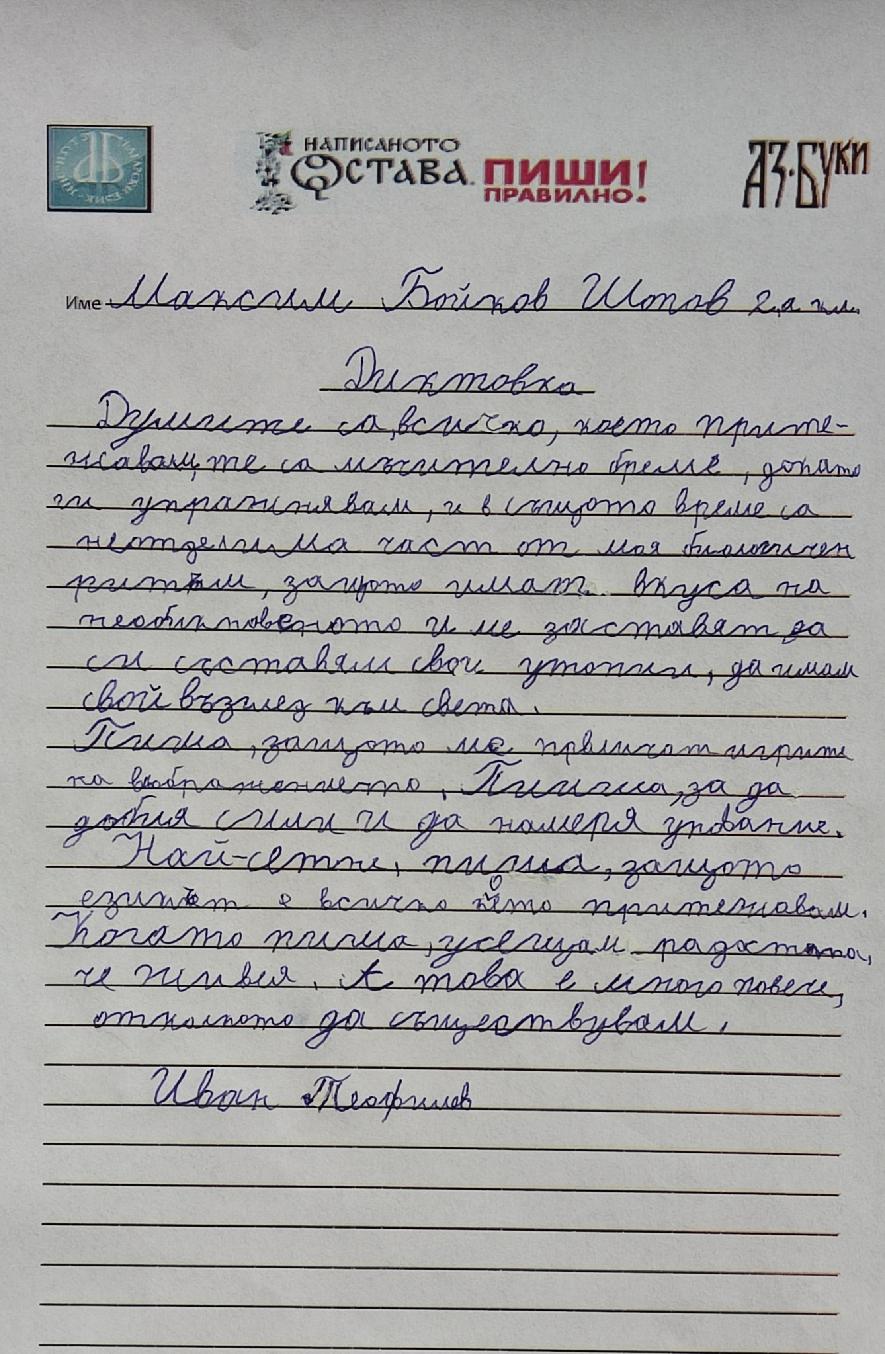 ИНСТИТУТ ЗА БЪЛГАРСКИ ЕЗИК
НАПИСАНОТО
ОСТАВА. ПИШИ!
ПРАВИЛНО!
АЗ·БУКИ
Име Максим Бойков Шопов 2.а кл.
Диктовка
Думите са, всичко, което прите-
жавам, те са мъчително бреме, докато
ги упражнявам, и в същото време са
неотделима част от моя биологичен
ритъм, защото имат вкуса на
необикновеното и ме заставят да
си съставям свои утопии, да имам
свой възглед към света.
Пиша, защото ме привличат игрите
на въображението. Пиша, за да
добия сили и да намеря упование.
Най-сетне, пиша, защото
езикът е всичко което притежавам.
Когато пиша, усещам радостта,
че живея. А това е много повече,
отколкото да съществувам.
Иван Теофилов